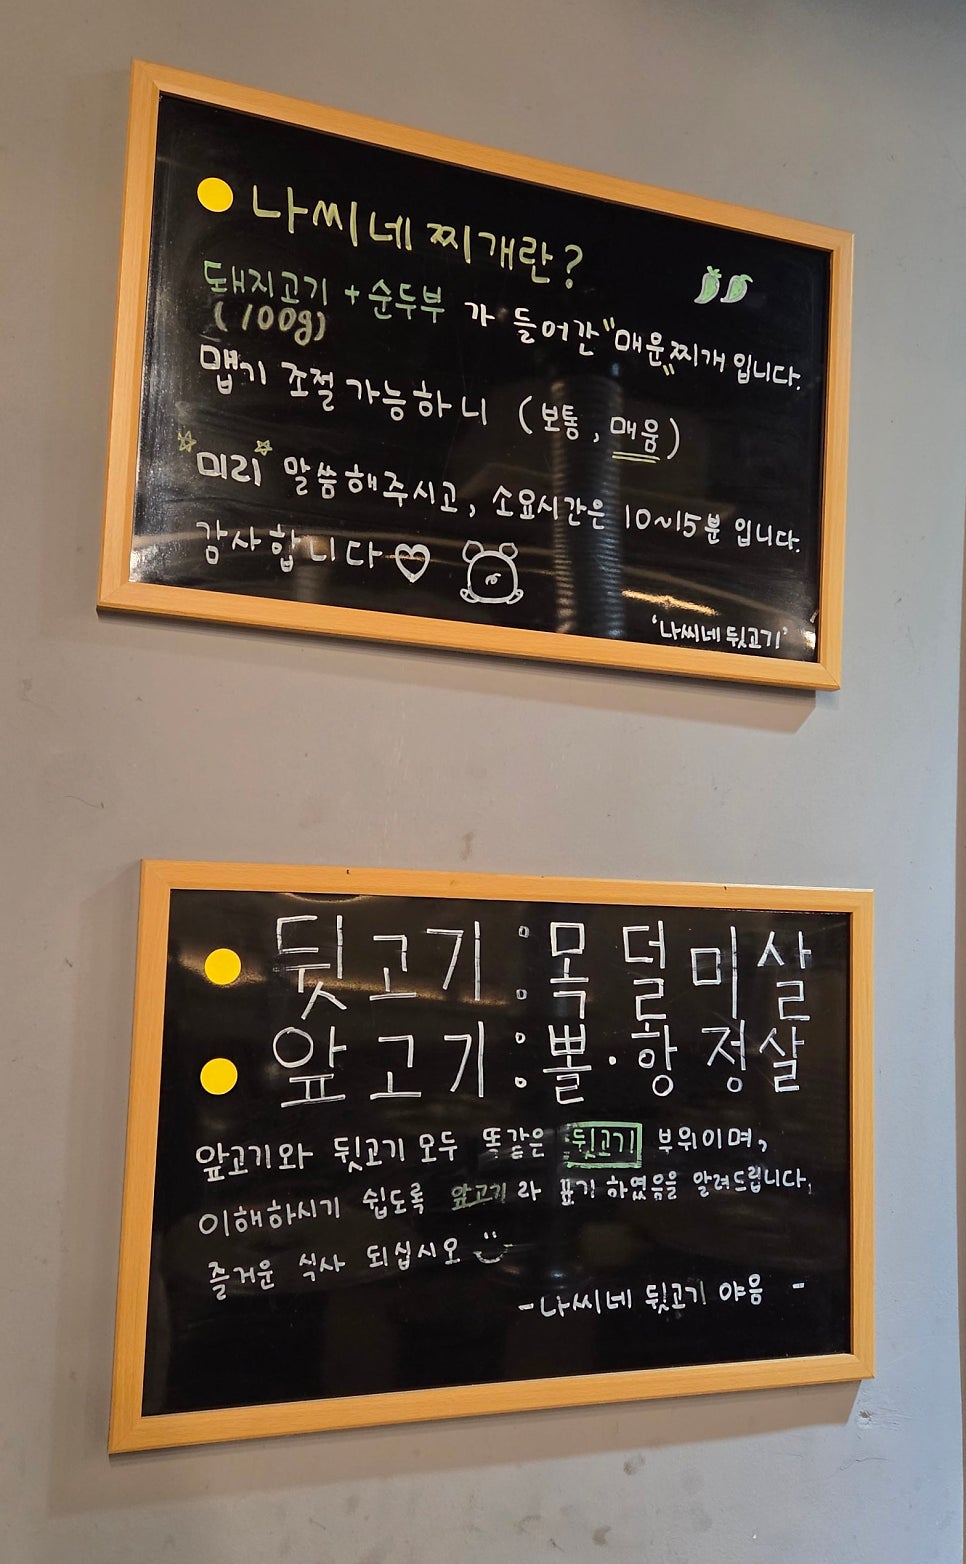 나씨네 찌개란?
돼지고기 + 순두부 가 들어간 "매운" 찌개 입니다.
(100g)
맵기 조절 가능하니 (보통, 매움)
"미리" 말씀해주시고, 소요시간은 10~15분 입니다.
감사합니다♡
'나씨네 뒷고기'
뒷고기 : 목덜미살
앞고기 : 뽈·항정살
앞고기와 뒷고기 모두 똑같은 뒷고기 부위이며,
이해하시기 쉽도록 앞고기라 표기 하였음을 알려드립니다.
즐거운 식사 되십시오
-나씨네 뒷고기 야음 -